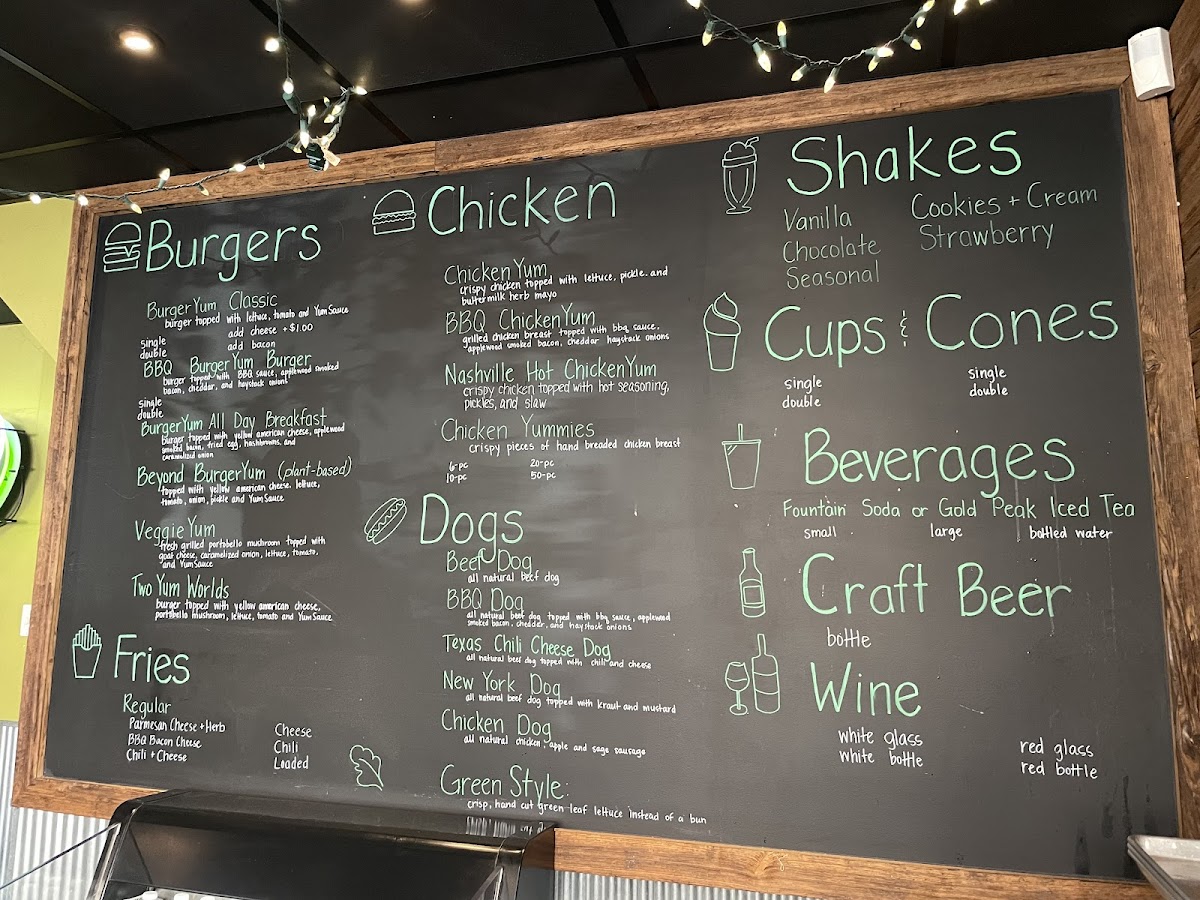 Burgers
BurgerYum Classic
burger topped with lettuce, tomato and YumSauce
add cheese +$1.00
single add bacon
double
BBQ BurgerYum Burger
burger topped with BBQ sauce, applewood smoked
bacon, cheddar, and haystack onions
single
double
BurgerYum All Day Breakfast
burger topped with yellow american cheese, applewood
smoked bacon, fried egg, hashbrowns, and
caramelized onion
Beyond BurgerYum (plant-based)
topped with yellow american cheese, lettuce,
tomato, onion, pickle and YumSauce
VeggieYum
fresh grilled portobello mushroom topped with
goat cheese, caramelized onion, lettuce, tomato,
and YumSauce
Two Yum Worlds
burger topped with yellow american cheese,
portobello mushroom, lettuce, tomato and YumSauce
Fries
Regular
Parmesan Cheese + Herb
BBQ Bacon Cheese
Chili + Cheese
Cheese
Chili
Loaded
Chicken
ChickenYum
crispy chicken topped with lettuce, pickle. and
buttermilk herb mayo
BBQ ChickenYum
grilled chicken breast topped with bbq sauce,
applewood smoked bacon, cheddar haystack onions
Nashville Hot ChickenYum
crispy chicken topped with hot seasoning,
pickles, and slaw
Chicken Yummies
crispy pieces of hand breaded chicken breast
6-pc 20-pc
10-pc 50-pc
Dogs
Beef Dog
all natural beef dog
BBQ Dog
all natural beef dog topped with bbq sauce, applewood
smoked bacon, cheddar, and haystack onions
Texas Chili Cheese Dog
all natural beef dog topped with chili and cheese
New York Dog
all natural beef dog topped with kraut and mustard
Chicken Dog
all natural chicken, apple and sage sausage
Green Style:
crisp, hand cut green leaf lettuce instead of a bun
Shakes
Vanilla
Chocolate
Seasonal
Cookies + Cream
Strawberry
Cups & Cones
single single
double double
Beverages
Fountain Soda or Gold Peak Iced Tea
small large bottled water
Craft Beer
bottle
Wine
white glass
white bottle
red glass
red bottle